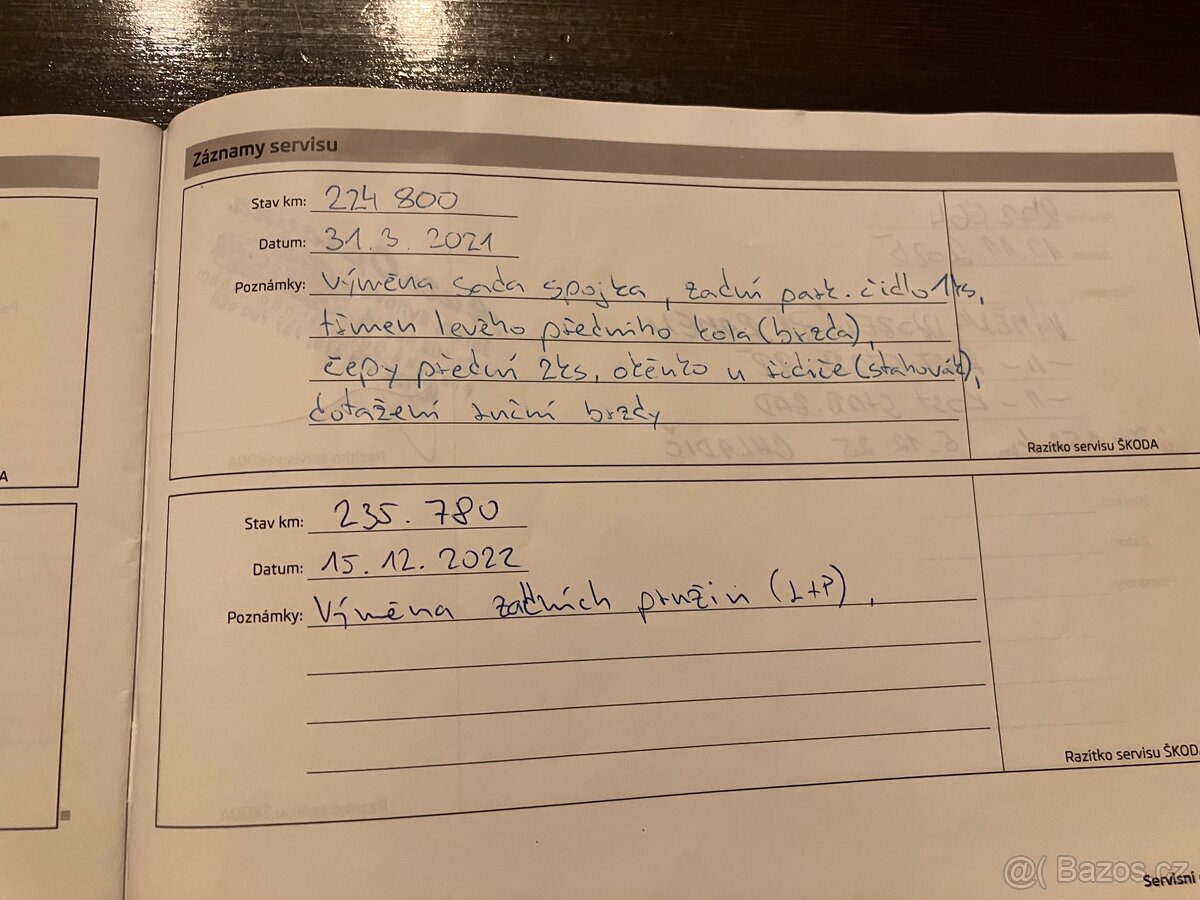 Záznamy servisu
Stav km: 224 800
Datum: 31.3.2021
Poznámky: Výměna sada spojka, zadní park. čidlo 1ks,
třmen levého předního kola (brzda),
čepy přední 2ks, okénko u řidiče (stahovák),
dotažení ruční brzdy
Razítko servisu ŠKODA
A
Stav km: 235.780
Datum: 15.12.2022
Poznámky: Výměna zadních pružin (L+P),
Razítko servisu ŠKOD
Servisní
@( Bazos.cz